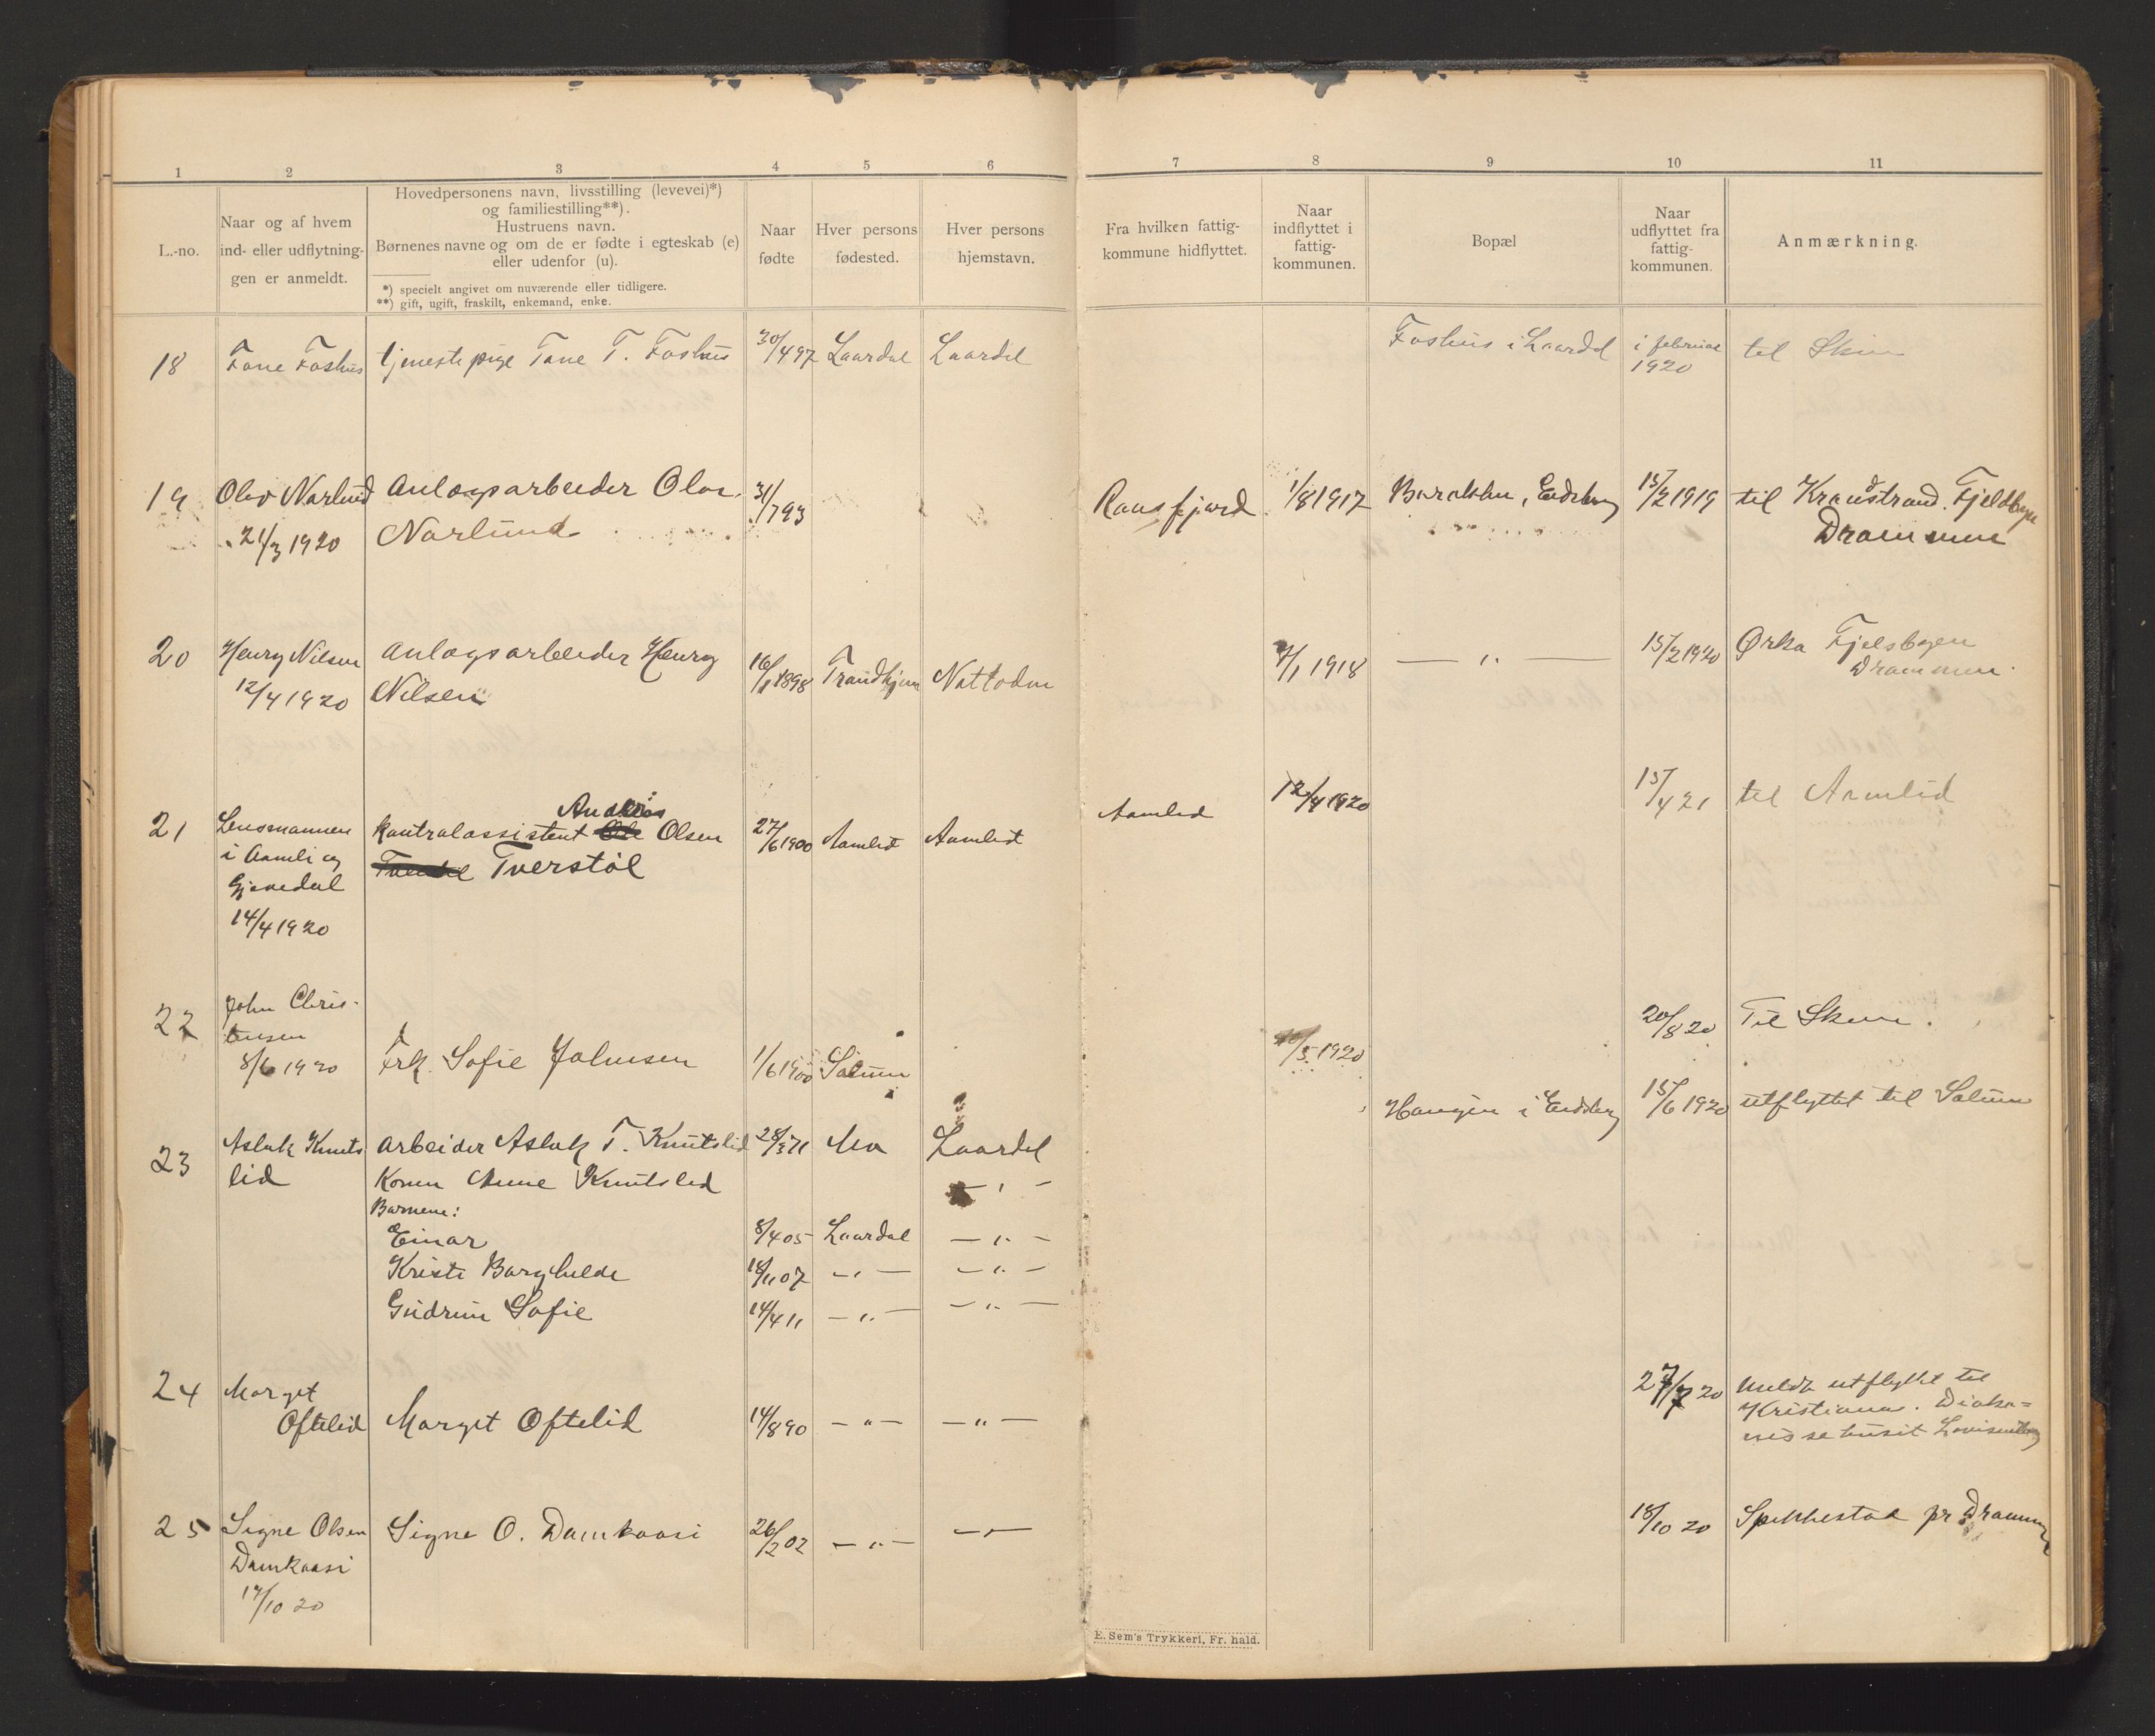 1 2 3 4 5 6 7 8 9 10 11
L.-no.
Naar og af hvem
ind- eller udflytning-
gen er anmeldt.
Hovedpersonens navn, livsstilling (levevei)*)
og familiestilling**).
Hustruens navn.
Børnenes navne og om de er fødte i egteskab (e)
eller udenfor (u).
*) specielt angivet om nuværende eller tidligere.
**) gift, ugift, fraskilt, enkemand, enke.
Naar
fødte
Hver persons
fødested.
Hver persons
hjemstavn.
Fra hvilken fattig-
kommune hidflyttet.
Naar
indflyttet i
fattig-
kommunen.
Bopæl
Naar
udflyttet fra
fattig-
kommunen.
Anmærkning.
18 Tone Foshus tjenestepige Tone T. Foshus 30/4 97 Laardal Laardal Foshus i Laardal i februar til Skien
1920
19 Olav Narlund Anlægsarbeider Olav 31/7 93 1/8 1917 15/2 1919 til Fjeldbyen
21/3 1920 Narlund Drammen
20 Henry Nilsen Anlægsarbeider Henry 16/1 1898 Trondhjem Nottoden 7/1 1918 — " — 15/2 1920 Ørka Fjelsbyen
12/4 1920 Nilsen Drammen.
21 Lensmannen kontralassistent Anders Olsen 27/6 1900 Aamlid Aamlid Aamlid 12/4 1920 15/4 21 til Aamlid
i Aamli og Tverstøl
Gjøvedal
14/4 1920
22 John Chris-
tensen
8/6 1920 Frk. Sofie Johnsen 1/6 1900 Solum /5 1920 20/8 20 Til Skien.
23 Aslak Knuts arbeider Aslak T. Knutslid 28/3 71 Mo Laardal i Eidsborg 15/6 1920 utflyttet til Solum
lid Konen Anne Knutslid — " —
Barnene:
Einar 8/4 05 Laardal — " —
Kristi Borghilde 18/11 07 — " — — " —
Gudrun Sofie 14/4 11 — " — — " —
24 Marget 27/7 20 meldt utflyttet til
Oftelid Marget Oftelid 14/8 90 — " — — " — Kristiania. Diako=
nissehuset Lovisenberg
25 Signe Olsen Signe O. Damkaasi 26/2 02 — " — — " — 18/10 20 Spikkestad pr Drammen
Damkaasi
17/10 20
E. Sem's Trykkeri, Fr. hald.